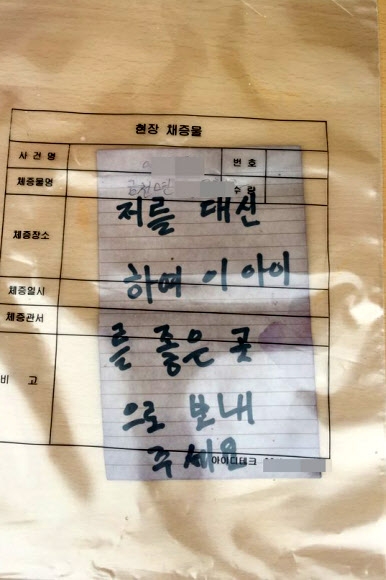 현장 채증물
사 건 명
번 호
채증물명
수 량
저를 대신
채증장소
하여 이 아이
채증일시
채증관서
를 좋은 곳
비 고
으로 보내
주세요
아이디테크